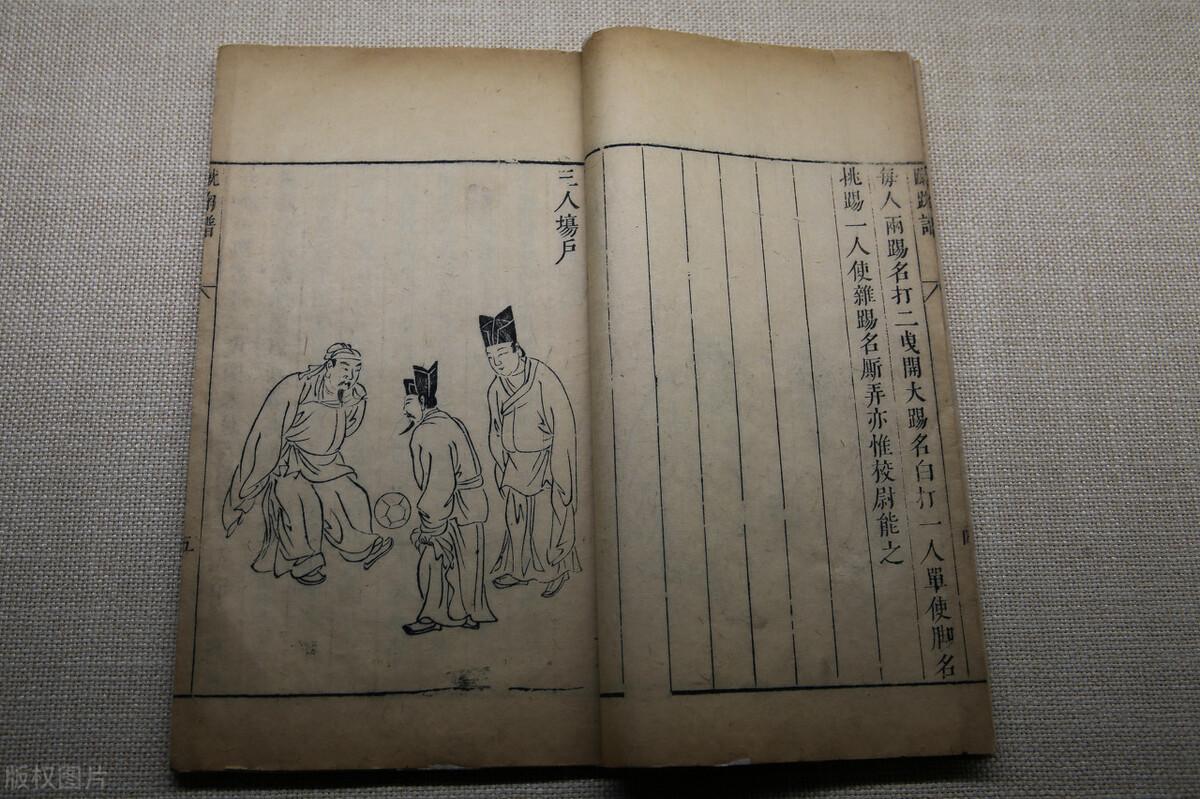 每人兩踢名打二曳開大踢名白打一人單使脚名
挑踢一人使雜踢名厮弄亦惟校尉能之
三人塲戶
譜
五
版权图片